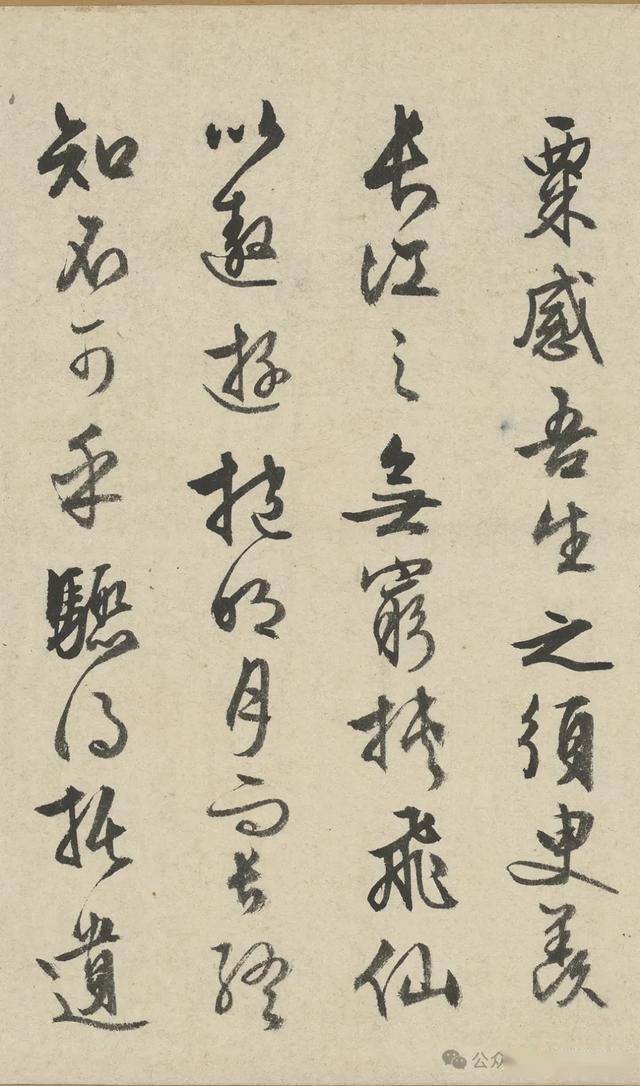 粟感吾生之須臾羨
長江之無窮挟飛仙
以遨遊抱明月而長終
知不可乎驟得托遺
公众